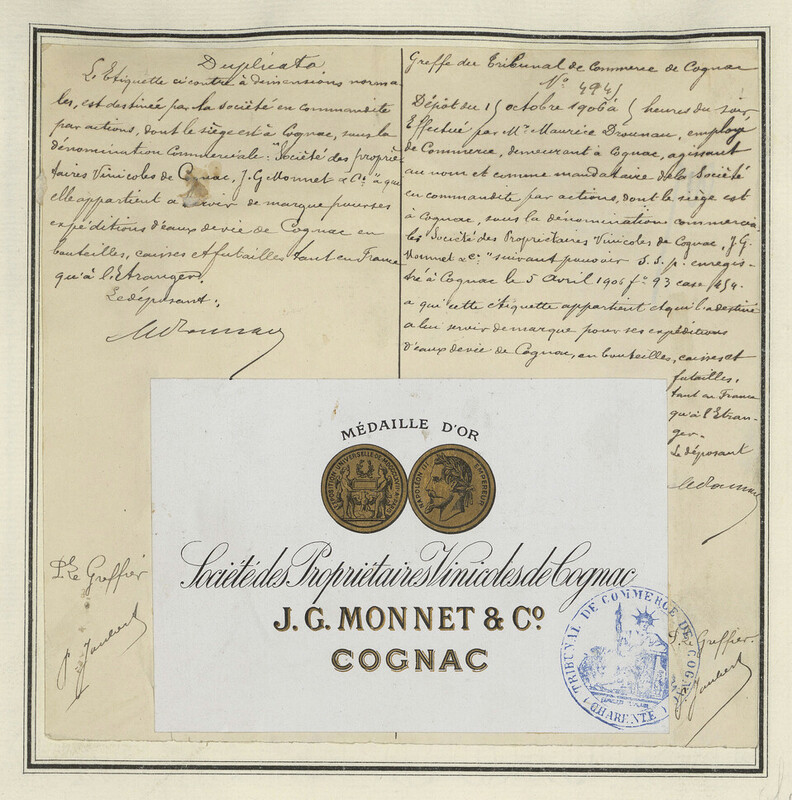 Duplicata
L'Etiquette ci contre à dimensions norma-
les, est destinée par la Société en commandite
par actions, dont le siège est à Cognac, sous la
dénomination Commerciale: "Société des proprié-
taires Vinicoles de Cognac, J. G. Monnet & Co" à qui
elle appartient a servir de marque pour ses
expéditions d'eaux de vie de Cognac en
bouteilles, caisses et futailles tant en France
qu'à l'Etranger.
Le déposant:
Greffe du Tribunal de Commerce de Cognac
No 4945
Dépôt du 15 octobre 1906 à 5 heures du soir
Effectué par Mr Maurice Drounau, employé
de Commerce, demeurant à Cognac, agissant
au nom et comme mandataire de la Société
en commandite par actions, dont le siège est
à Cognac, sous la dénomination commercia-
le: "Société des Propriétaires Vinicoles de Cognac, J. G.
Monnet & Co" suivant pouvoir S. S. p. enregis-
tré à Cognac le 5 Avril 1906 fo 93 case 454.
a qui cette étiquette appartient et qui l'a destiné
a lui servir de marque pour ses expéditions
d'eaux de vie de Cognac, en bouteilles, caisses et
futailles,
tant en France
qu'à l'Etran-
ger.
Le déposant
MÉDAILLE D'OR
EXPOSITION UNIVERSELLE DE
NAPOLEON III EMPEREUR
Société des Propriétaires Vinicoles de Cognac
J. G. MONNET & Co
COGNAC
TRIBUNAL DE COMMERCE DE COGNAC
(CHARENTE)
Pr Le Greffier
P. Jaubert
Pr Greffier
Jaubert